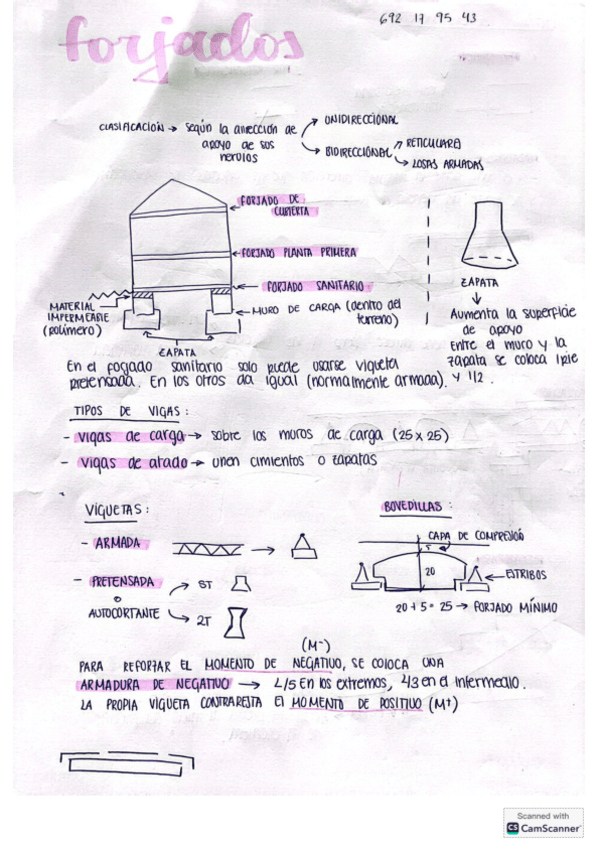 692 17 95 43
forjados
CLASIFICACIÓN → según la dirección de
apoyo de sus
nervios
UNIDIRECCIONAL
BIDIRECCIONAL
RETICULARES
LOSAS ARMADAS
FORJADO DE
CUBIERTA
FORJADO PLANTA PRIMERA
FORJADO SANITARIO
MURO DE CARGA (dentro del
terreno)
MATERIAL
IMPERMEABLE
(polímero)
ZAPATA
ZAPATA
↓
Aumenta la superficie
de apoyo
Entre el muro y la
zapata se coloca 1 pie
y 1/2.
En el forjado sanitario solo puede usarse vigueta
pretensada. En los otros da igual (normalmente armada).
TIPOS DE VIGAS:
- vigas de carga → sobre los muros de carga (25 x 25)
- vigas de atado → unen cimientos o zapatas
VIGUETAS:
- ARMADA
- PRETENSADA
o
AUTOCORTANTE
ST
2T
BOVEDILLAS:
CAPA DE COMPRESIÓN
5
20
ESTRIBOS
20 + 5 = 25 → FORJADO MÍNIMO
(M⁻)
PARA REFORZAR EL MOMENTO DE NEGATIVO, SE COLOCA UNA
ARMADURA DE NEGATIVO → L/5 En los extremos, L/3 en el intermedio.
LA PROPIA VIGUETA CONTRARESTA El MOMENTO DE POSITIVO (M⁺)
Scanned with
CS CamScanner